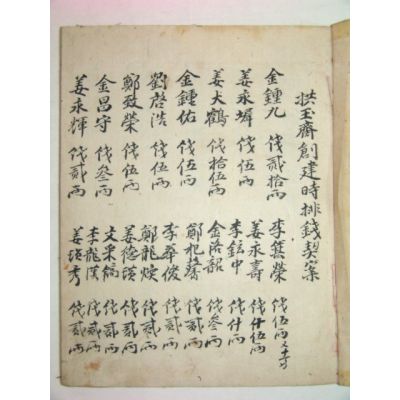 拱玉齋創建時排錢契案
金鍾九 伐貳拾兩
李 榮 伐伍兩又
姜永墀 伐伍兩
姜永壽 伐 伍兩
姜大鶴 伐拾伍兩
李鉉中 伐 兩
金鍾佑 伐伍兩
金洛韶 伐叁兩
劉啓浩 伐伍兩
鄭杞馨 伐貳兩
鄭致榮 伐伍兩
李 俊 伐貳兩
金昌守 伐叁兩
鄭龍煥 伐貳兩
姜永輝 伐貳兩
姜德瑛 伐貳兩
文采鎬 伐貳兩
李龍漢 伐貳兩
姜 秀 伐貳兩